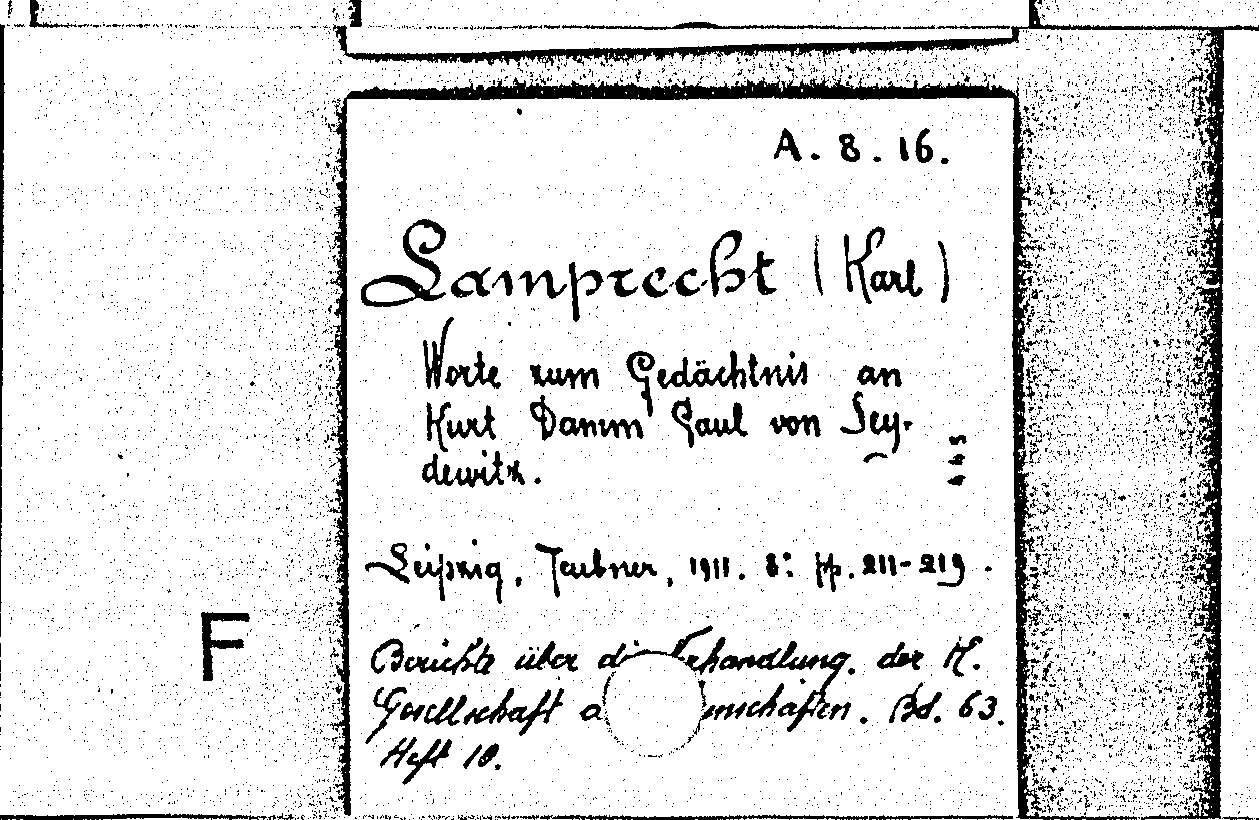 A. 8. 16.
Lamprecht (Karl)
Worte zum Gedächtnis an
Kurt Damm Paul von Sey-
dewitz.
Leipzig, Teubner, 1911. 8°. pp. 211-219.
F
Berichte über die Verhandlung. der K.
Gesellschaft enschaften. Bd. 63.
Heft 10.